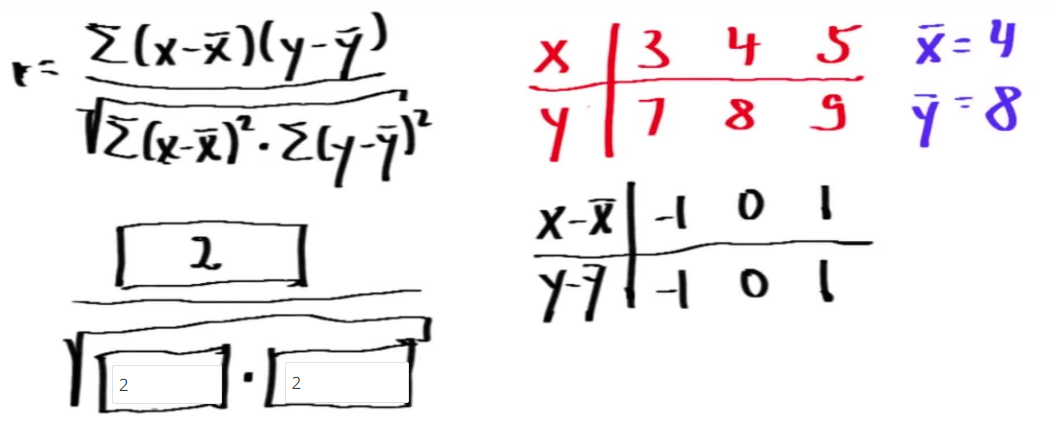 r = Σ(x-x̄)(y-ȳ) / √Σ(x-x̄)² · Σ(y-ȳ)²
2
2 · 2
x 3 4 5
y 7 8 9
x̄ = 4
ȳ = 8
x-x̄ -1 0 1
y-ȳ -1 0 1